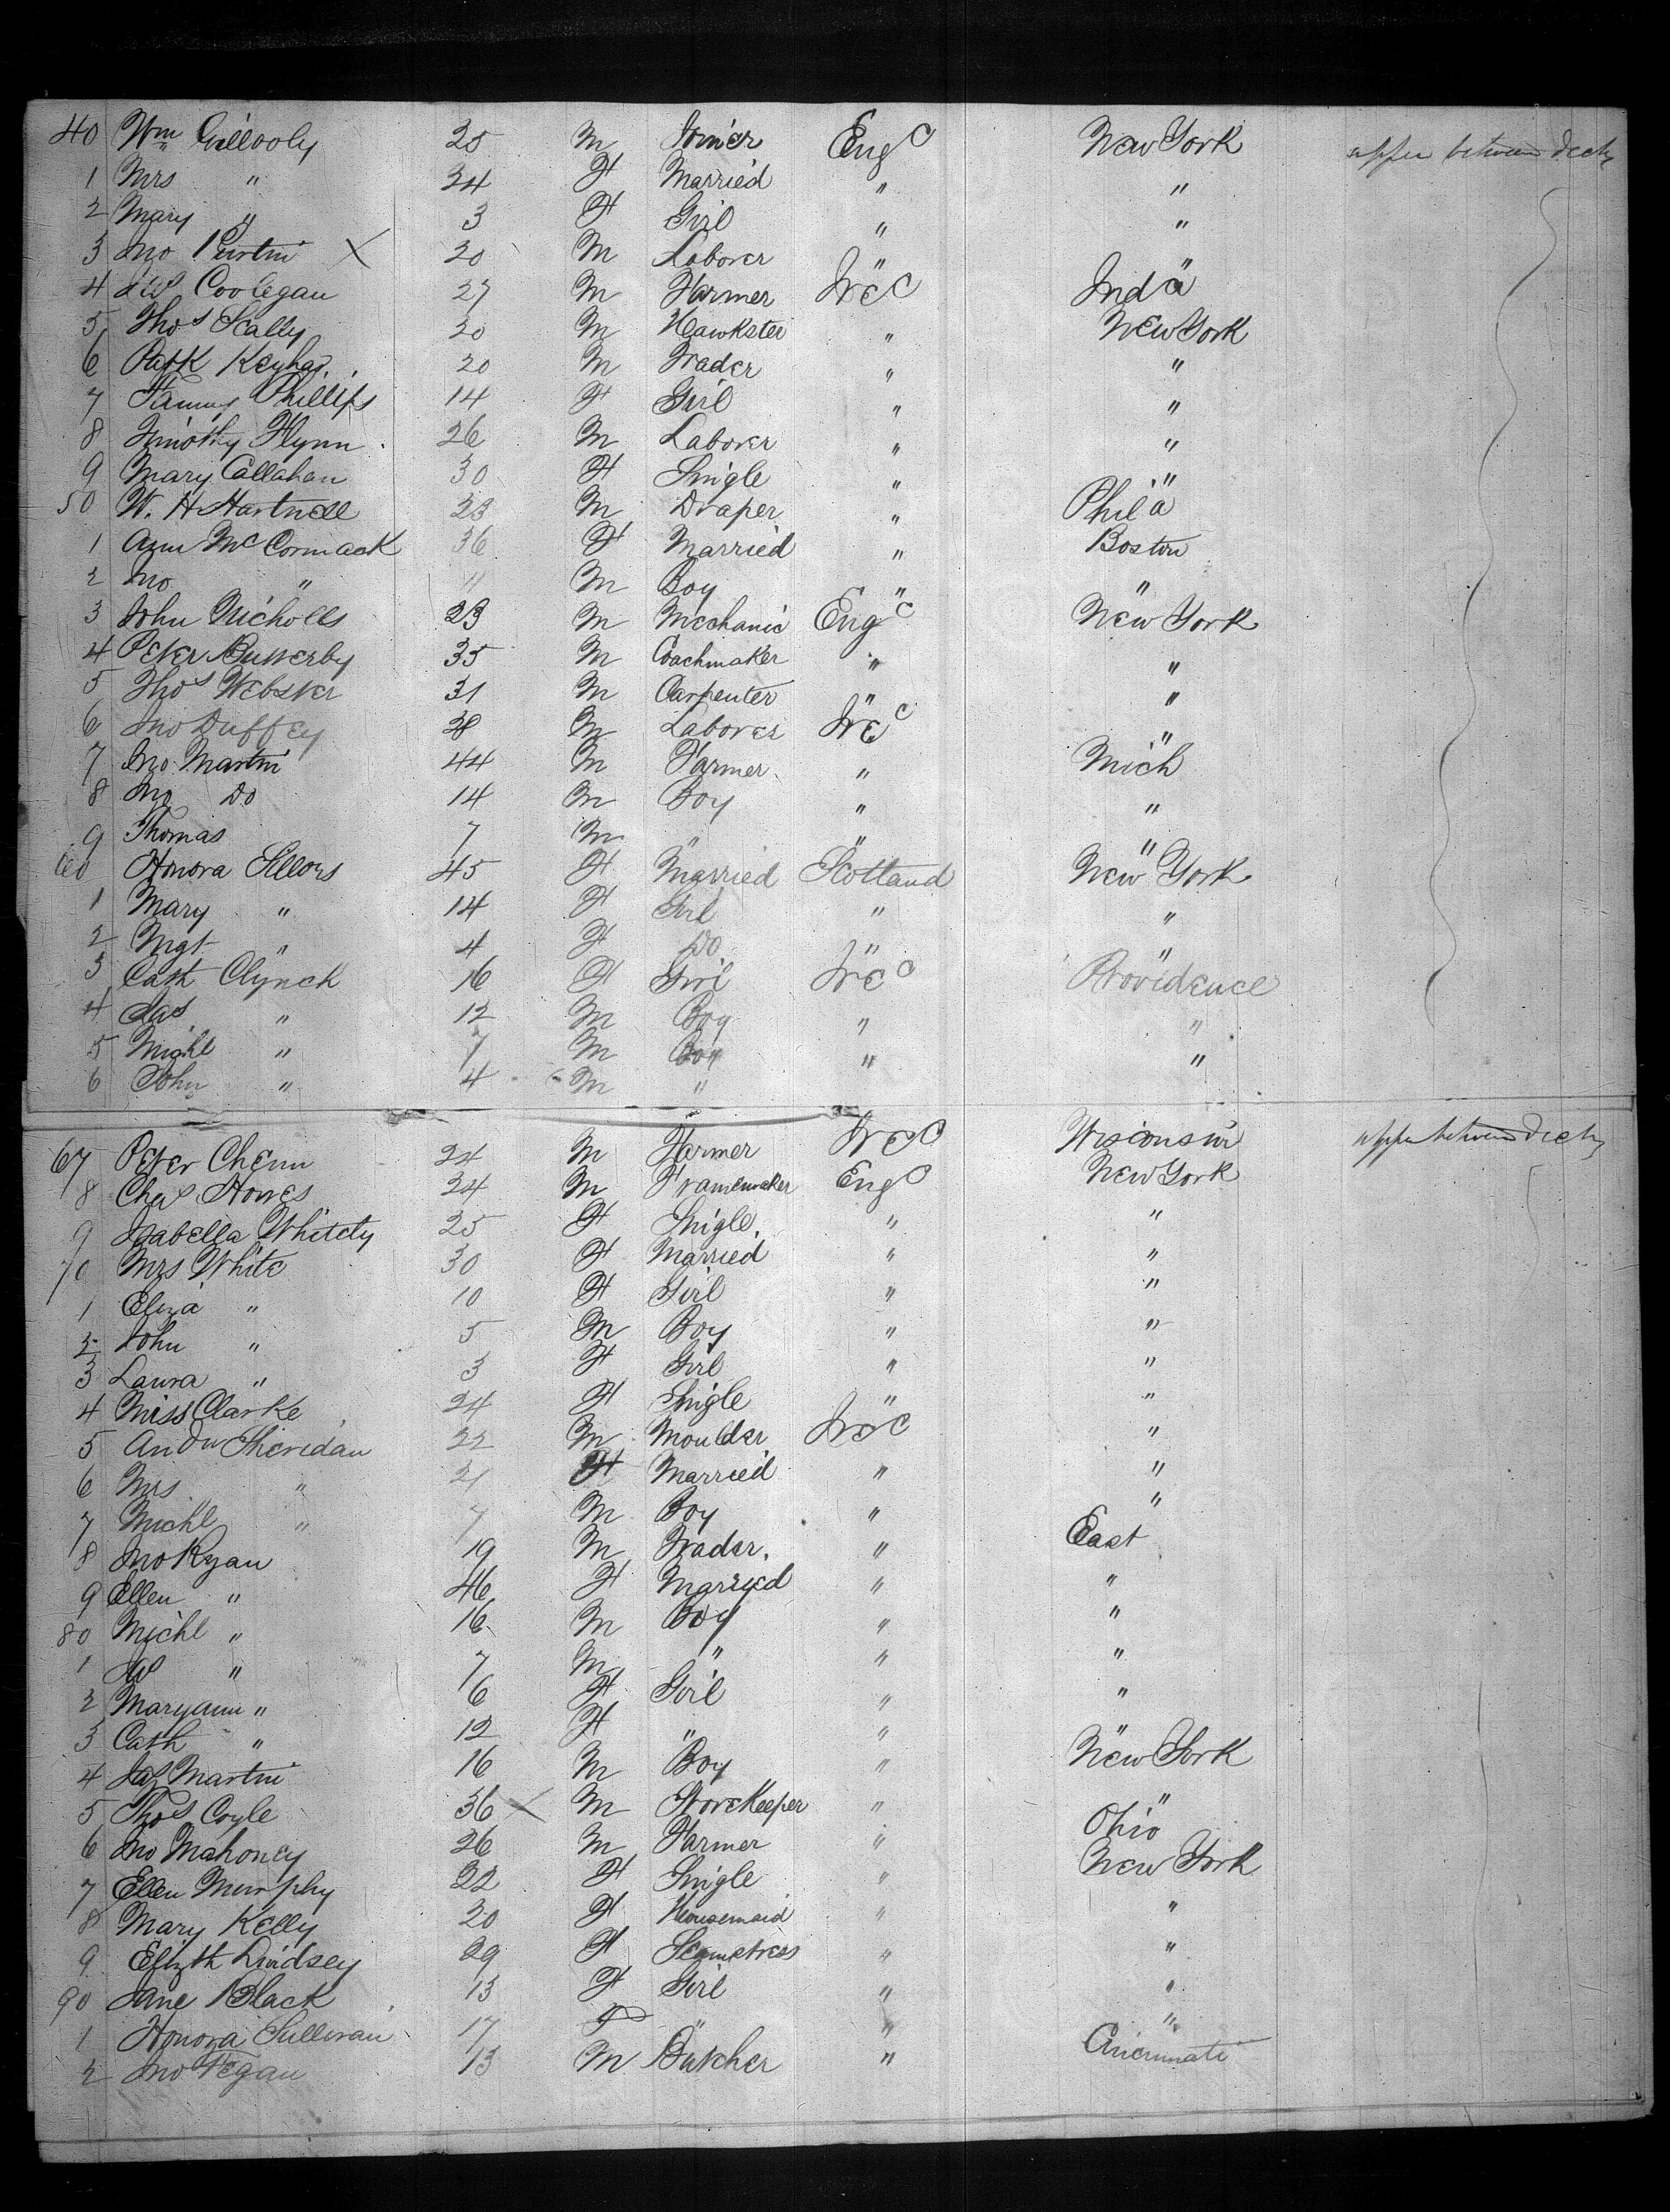 40 Wm Gillooly 25 M Joiner Engd New York upper between decks
1 Mrs " 24 F Married " "
2 Mary " 3 F Girl " "
3 Jno X 20 M Laborer " "
4 Coolegan 27 M Farmer Ired Inda
5 Thos Scally 20 M Hawkster " New York
6 Patk 20 M Trader " "
7 Fanny Phillips 14 F Girl " "
8 Timothy Flynn 26 M Laborer " "
9 Mary Callahan 30 F Single " "
50 W. H Hartnell 23 M Draper " Phila
1 Ann McCormack 36 F Married " Boston
2 Jno " 11 M Boy " "
3 John Nicholls 23 M Mechanic Engd New York
4 Peter 35 M Coachmaker " "
5 Thos Webster 31 M Carpenter " "
6 Jno Duffey M Laborer Ired "
7 Jno Martin 44 M Farmer " Mich
8 Jno Do 14 M Boy " "
9 Thomas 7 M " " "
60 Honora Sellors 45 F Married Scotland New York
1 Mary " 14 F Girl " "
2 Mgt " 4 F Do " "
3 Cath Clynch 16 F Girl Ired Providence
4 Jas " 12 M Boy " "
5 Michl " 7 M Boy " "
6 John " 4 M "
67 Peter 24 M Farmer Ired Wisconsin upper between decks
8 Chas Howes 24 M Framemaker Engd New York
9 Isabella Whitely 25 F Single. " "
70 Mrs White 30 F Married " "
1 Eliza " 10 F Girl " "
2 John " 5 M Boy " "
3 Laura " 3 F Girl " "
4 Miss Clarke 24 F Single " "
5 Andw Sheridan 22 M Moulder Ired "
6 Mrs " 21 F Married " "
7 Michl " 7 M Boy " "
8 Jno Ryan 19 M Trader. " East
9 Ellen " 46 F Married " "
80 Michl " 16 M Boy " "
1 " 7 M " " "
2 Maryann " 6 F Girl " "
3 Cath " 12 F " " "
4 Jas Martin 16 M Boy " New York
5 Thos Coyle 36 X M Storekeeper " "
6 Jno Mahoney 26 M Farmer " Ohio
7 Ellen Murphy 22 F Single " New York
8 Mary Kelly 20 F Housemaid " "
9 Elizth Lindsey 29 F Seamstress " "
90 Jane Black 13 F Girl " "
1 Honora Sullivan 17 F " " "
2 Jno Fegan 13 M Butcher " Cincinnati